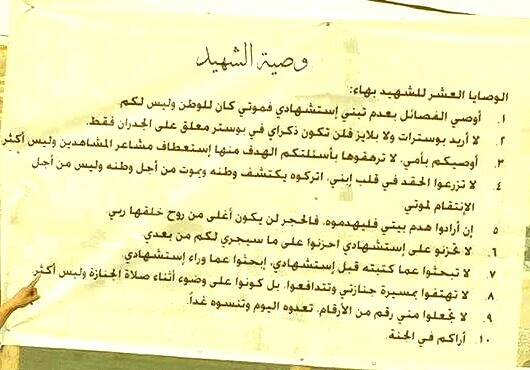 وصية الشهيد
الوصايا العشر للشهيد بهاء:
١. أوصي الفصائل بعدم تبني إستشهادي فموتي كان للوطن وليس لكم
٢. لا أريد بوسترات ولا بلايز فلن تكون ذكراي في بوستر معلق على الجدران فقط.
٣. أوصيكم بأمي. لا ترهقوها بأسئلتكم الهدف منها إستعطاف مشاعر المشاهدين وليس أكثر
٤. لا تزرعوا الحقد في قلب إبني. اتركوه يكتشف وطنه ويموت من أجل وطنه وليس من أجل
الإنتقام لموتي
٥ إن أرادوا هدم بيتي فليهدموه. فالحجر لن يكون أغلى من روح خلقها ربي
٦. لا تحزنو على إستشهادي احزنوا على ما سيجري لكم من بعدي
٧. لا تبحثوا عما كتبته قبل إستشهادي. إبحثوا عما وراء إستشهادي
٨. لا تهتفوا بمسيرة جنازتي وتتدافعوا. بل كونوا على وضوء أثناء صلاة الجنازة وليس أكثر
٩. لا تجعلوا مني رقم من الأرقام. تعدوه اليوم وتنسوه غداً.
١٠. أراكم في الجنة.